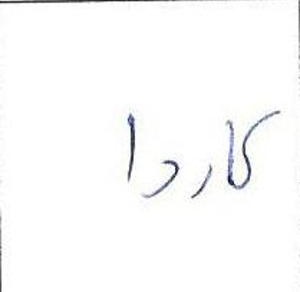 کاردا